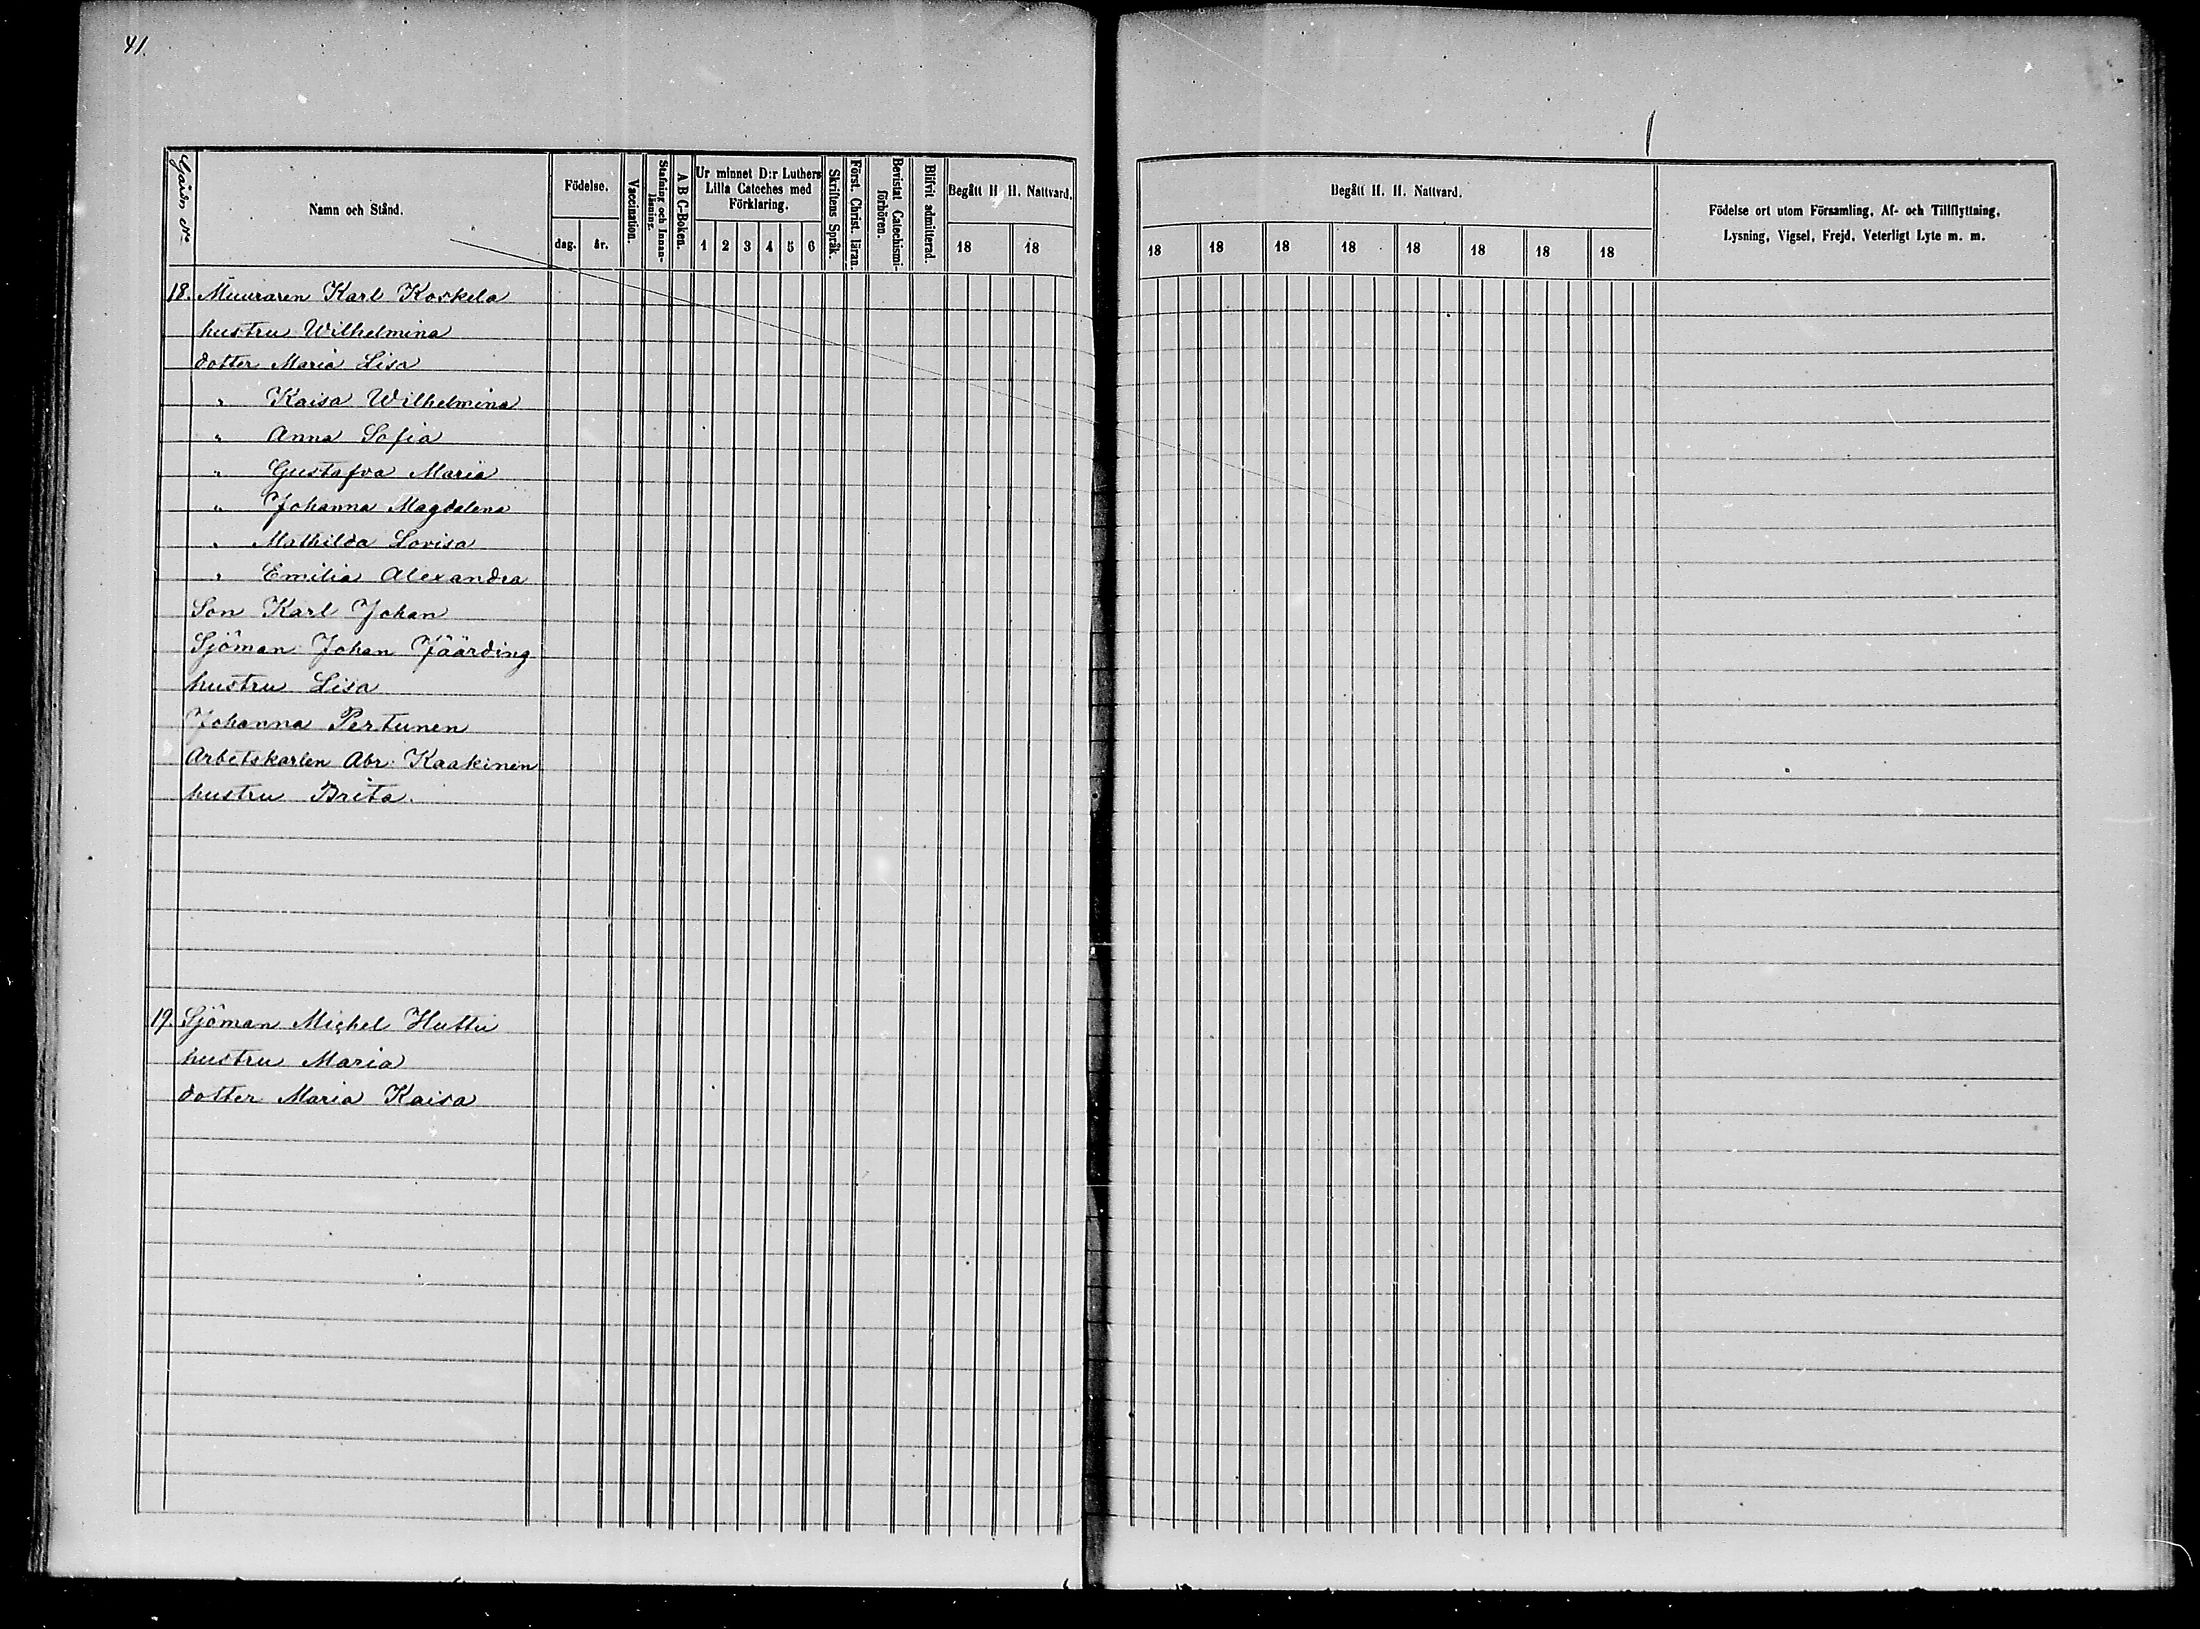 41.
Gårds No
Namn och Stånd.
Födelse.
dag.
år.
Vaccination.
Stafning och Innan-
läsning.
A B C-Boken.
Ur minnet D:r Luthers
Lilla Cateches med
Förklaring.
1 2 3 4 5 6
Skriftens Språk.
Först. Christ. läran.
Bevistat Catechismi-
förhören.
Blifvit admitterad.
Begått H. H. Nattvard.
18 18
Begått H. H. Nattvard.
18 18 18 18 18 18 18 18
Födelse ort utom Församling, Af- och Tillflyttning,
Lysning, Vigsel, Frejd, Veterligt Lyte m. m.
18. Muuraren Karl Koskela
hustru Wilhelmina
dotter Maria Lisa
" Kaisa Wilhelmina
" Anna Sofia
" Gustafva Maria
" Johanna Magdalena
" Mathilda Lovisa
" Emilia Alexandra
Son Karl Johan
Sjöman Johan Jäärding
hustru Lisa
Johanna Pertunen
Arbetskarlen Abr: Kaakinen
hustru Brita.
19. Sjöman Michel Huttu
hustru Maria
dotter Maria Kaisa